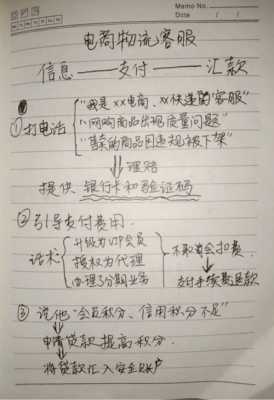 Memo No.
Date / /
电商物流客服
信息——支付——汇款
①打电话
"我是xx电商、xx快递的客服"
"网购商品出现质量问题"
"售卖的商品因违规被下架"
理赔
提供 银行卡和验证码
②引导支付费用.
话术
升级为VIP会员
授权为代理
办理了分期业务
不取消会扣费.
支付手续费退款
③说他"会员积分、信用积分不足"
申请贷款提高积分.
将贷款汇入安全账户